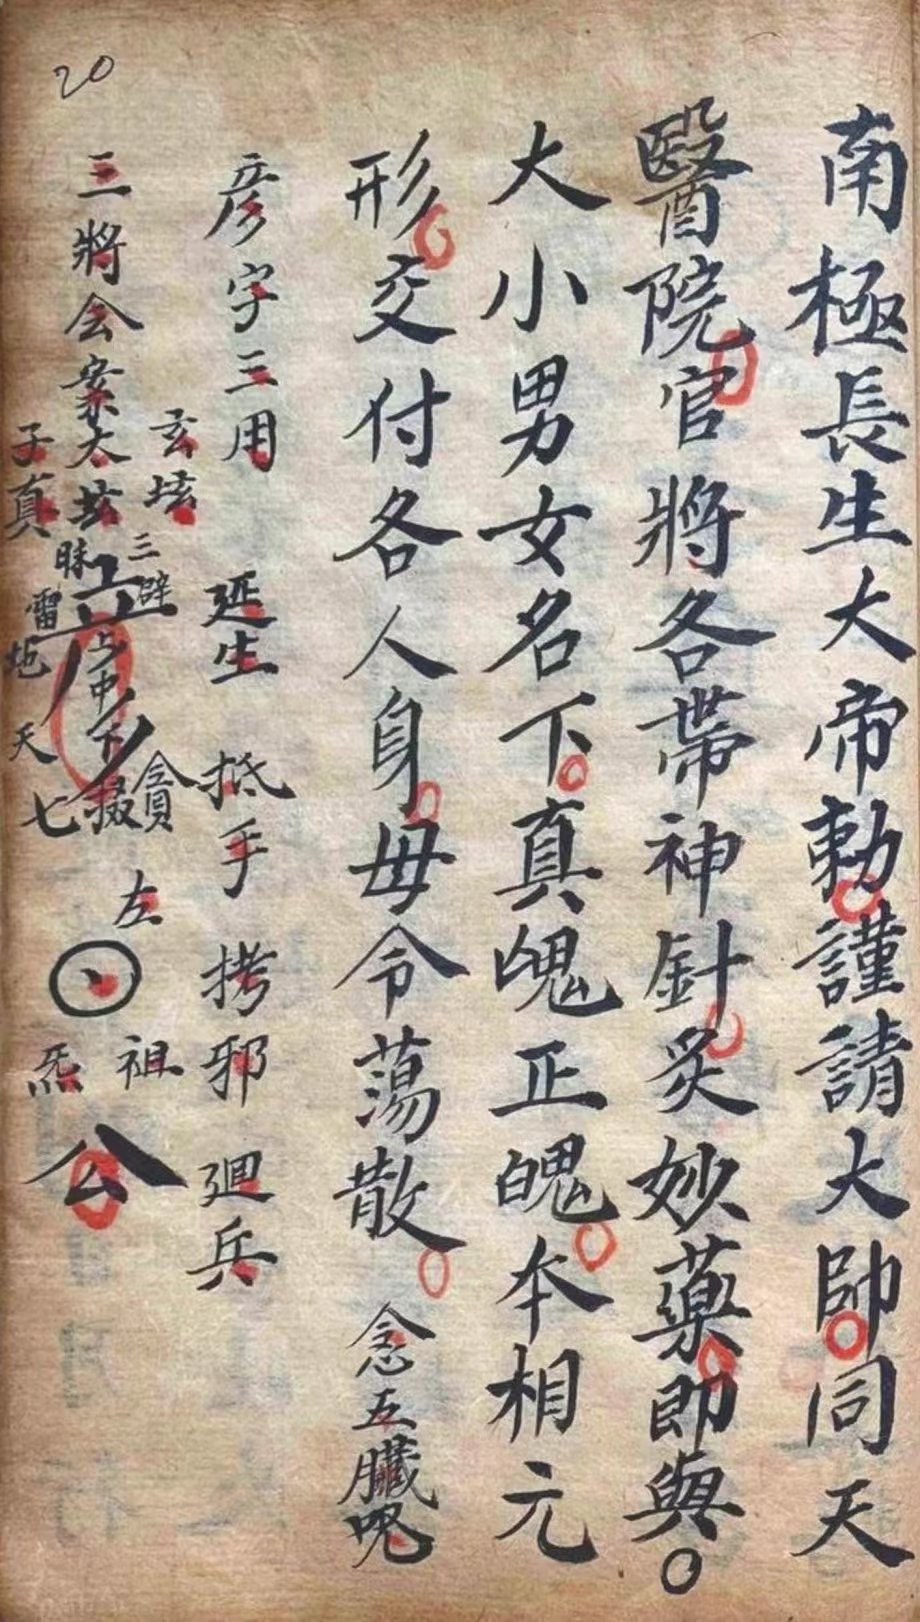 南極長生大帝勅謹請大帥同天
醫院官將各帶神針炙妙藥即與○
大小男女名下真魂正魄本相元
形交付各人身毋令蕩散 念五臟咒
彦字三用 延生 抵手 拷邪 迴兵
玄坛 三 辟 貪 左 祖
三將会案太玄
上中下
公
子真 雷 天 七 炁
20